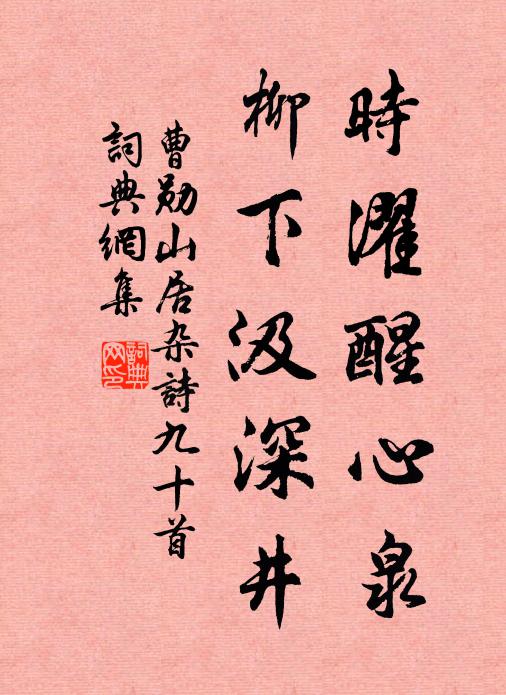 時濯醒心泉
柳下汲深井
曹勛山居杂詩九十首
詞典網集
詞典網印